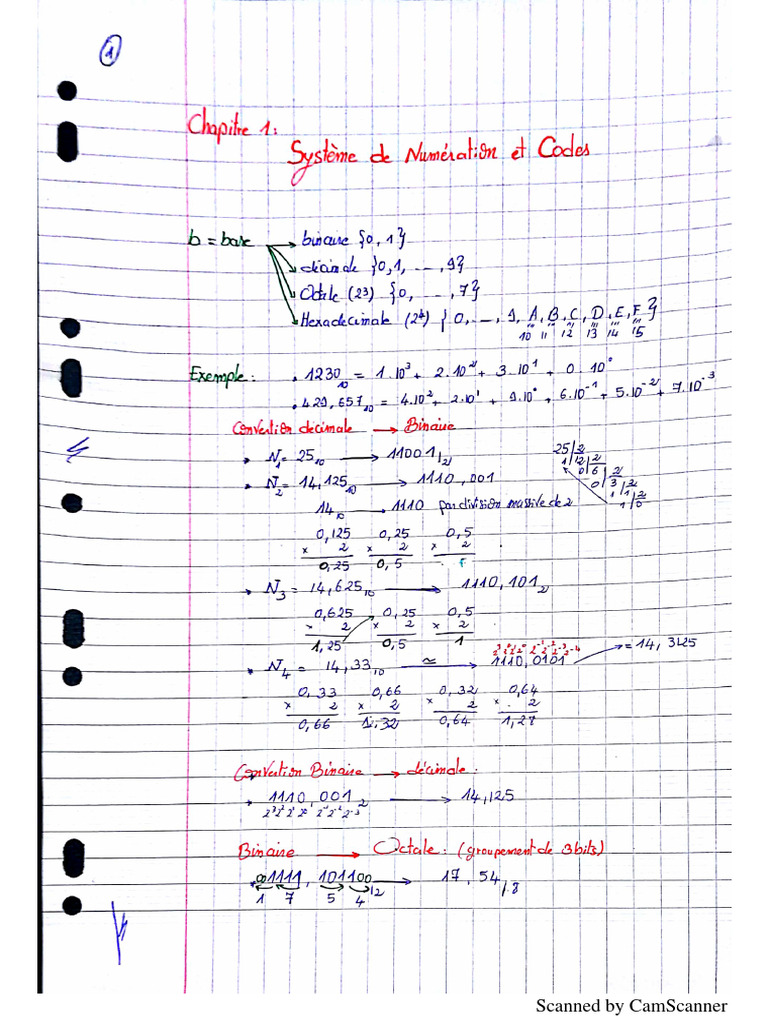 1
Chapitre 1:
Système de Numération et Codes
b = base → binaire {0, 1}
décimale {0,1, ..., 9}
Octale (2³) {0, ..., 7}
Hexadecimale (2⁴) {0, ..., 9, A, B, C, D, E, F}
10 11 12 13 14 15
Exemple: . 1230₁₀ = 1.10³ + 2.10² + 3.10¹ + 0.10⁰
. 429,657₁₀ = 4.10² + 2.10¹ + 9.10⁰ + 6.10⁻¹ + 5.10⁻² + 7.10⁻³
Convertion decimale → Binaire
N₁ = 25₁₀ → 11001₂
25 2
1 12 2
0 6 2
0 3 2
1 1 2
1 0
N₂ = 14,125₁₀ → 1110,001
14₁₀ → 1110 par division massive de 2
0,125 0,25 0,5
× 2 × 2 × 2
0,25 0,5
N₃ = 14,625₁₀ → 1110,101₂
0,625 0,25 0,5
× 2 × 2 × 2
1,25 0,5 1
2³ 2² 2¹ 2⁰ 2⁻¹ 2⁻² 2⁻³ 2⁻⁴
N₄ = 14,33₁₀ ≃ → 1110,0101 → = 14,3125
0,33 0,66 0,32 0,64
× 2 × 2 × 2 × 2
0,66 1,32 0,64 1,28
Convertion Binaire → décimale :
1110,001₂ → 14,125
2³ 2² 2¹ 2⁰ 2⁻¹ 2⁻² 2⁻³
Binaire → Octale : (groupement de 3bits)
001111,101100₂ → 17,54/8
1 7 5 4
Scanned by CamScanner